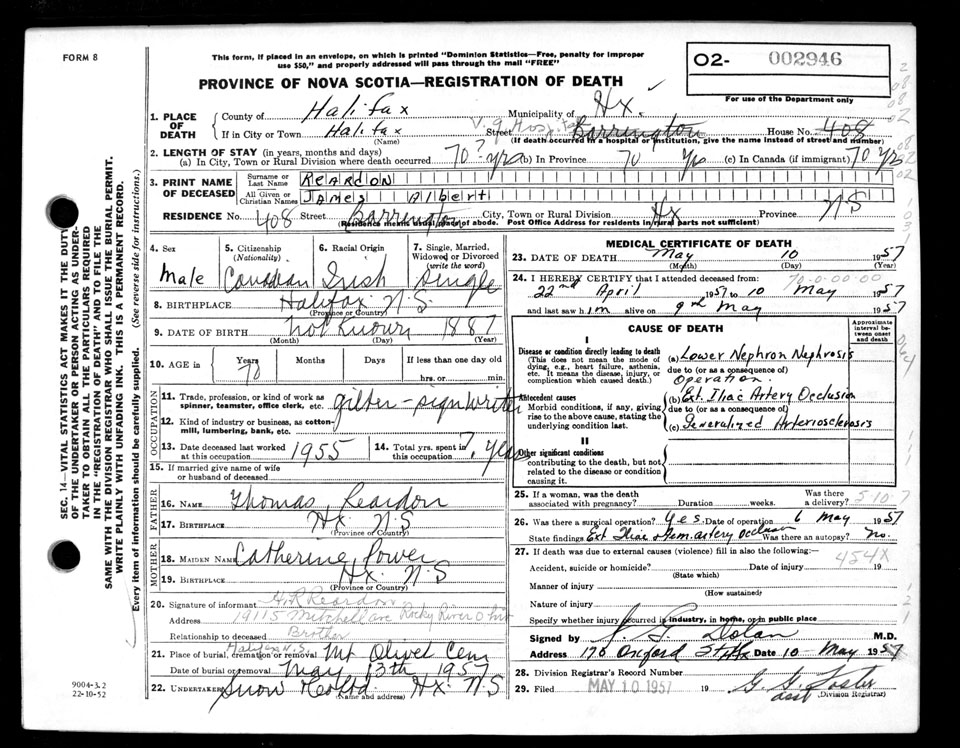 FORM 8
This form, if placed in an envelope, on which is printed "Dominion Statistics—Free, penalty for improper
use $50," and properly addressed will pass through the mail "FREE"
PROVINCE OF NOVA SCOTIA—REGISTRATION OF DEATH
O2- 002946
For use of the Department only
1. PLACE OF DEATH
County of Halifax Municipality of Hx.
If in City or Town Halifax Street V.G. Hospital Barrington House No. 408
(Name) (If death occurred in a hospital or institution, give the name instead of street and number)
2. LENGTH OF STAY (in years, months and days)
(a) In City, Town or Rural Division where death occurred 70? yrs (b) In Province 70 yrs (c) In Canada (if immigrant) 70 yrs
3. PRINT NAME OF DECEASED
Surname or Last Name REARDON
All Given or Christian Names James Albert
RESIDENCE No. 408 Street Barrington City, Town or Rural Division Hx Province N S
(Residence means usual place of abode. Post Office Address for residents in rural parts not sufficient)
4. Sex Male
5. Citizenship (Nationality) Canadian
6. Racial Origin Irish
7. Single, Married, Widowed or Divorced (write the word) Single
8. BIRTHPLACE Halifax N.S.
(Province or Country)
9. DATE OF BIRTH not known 1887
(Month) (Day) (Year)
10. AGE in Years 70 Months Days If less than one day old
hrs. or min.
OCCUPATION
11. Trade, profession, or kind of work as
spinner, teamster, office clerk, etc. gilter - signwriter
12. Kind of industry or business, as cotton-
mill, lumbering, bank, etc.
13. Date deceased last worked at this occupation 1955
14. Total yrs. spent in this occupation ? years
15. If married give name of wife
or husband of deceased
FATHER
16. NAME Thomas Reardon
17. BIRTHPLACE Hx. N.S
(Province or Country)
MOTHER
18. MAIDEN NAME Catherine Power
19. BIRTHPLACE Hx. N.S
(Province or Country)
20. Signature of informant H.R Reardon
Address 19115 Mitchell ave Rocky River Ohio
Relationship to deceased Brother
21. Place of burial, cremation or removal Halifax N.S. Mt Olivet Cem
Date of burial or removal May 13th 1957
22. UNDERTAKER Snow Hx. N.S
(Name and address)
MEDICAL CERTIFICATE OF DEATH
23. DATE OF DEATH May 10 1957
(Month) (Day) (Year)
24. I HEREBY CERTIFY that I attended deceased from:
22nd April 1957 to 10 May 1957
and last saw him alive on 9th May 1957
CAUSE OF DEATH
Approximate interval between onset and death
I
Disease or condition directly leading to death
(This does not mean the mode of dying, e.g., heart failure, asthenia, etc. It means the disease, injury, or complication which caused death.)
(a) Lower Nephron Nephrosis
due to (or as a consequence of)
Operation.
Antecedent causes
Morbid conditions, if any, giving rise to the above cause, stating the underlying condition last.
(b) Ext. Iliac Artery Occlusion
due to (or as a consequence of)
(c) Generalized Arteriosclerosis
II
Other significant conditions
contributing to the death, but not related to the disease or condition causing it.
25. If a woman, was the death associated with pregnancy? Duration weeks. Was there a delivery? 5107
26. Was there a surgical operation? Yes. Date of operation 6 May 1957
State findings Ext Iliac Fem. artery occlusion Was there an autopsy? no.
27. If death was due to external causes (violence) fill in also the following:—
Accident, suicide or homicide? Date of injury 19
454X
(State which)
Manner of injury
(How sustained)
Nature of injury
Specify whether injury occurred in industry, in home, or in public place
Signed by Dolan M.D.
Address 178 Oxford St Hx Date 10 - May 1957
28. Division Registrar's Record Number
29. Filed MAY 10 1957 19 G. G. Foster
asst (Division Registrar)
SEC. 14—VITAL STATISTICS ACT MAKES IT THE DUTY
OF THE UNDERTAKER OR PERSON ACTING AS UNDER-
TAKER TO OBTAIN ALL THE PARTICULARS REQUIRED
IN THE "REGISTRATION OF DEATH" AND TO FILE THE
SAME WITH THE DIVISION REGISTRAR WHO SHALL ISSUE THE BURIAL PERMIT.
WRITE PLAINLY WITH UNFADING INK. THIS IS A PERMANENT RECORD.
Every item of information should be carefully supplied. (See reverse side for instructions.)
9004-3.2
22-10-52